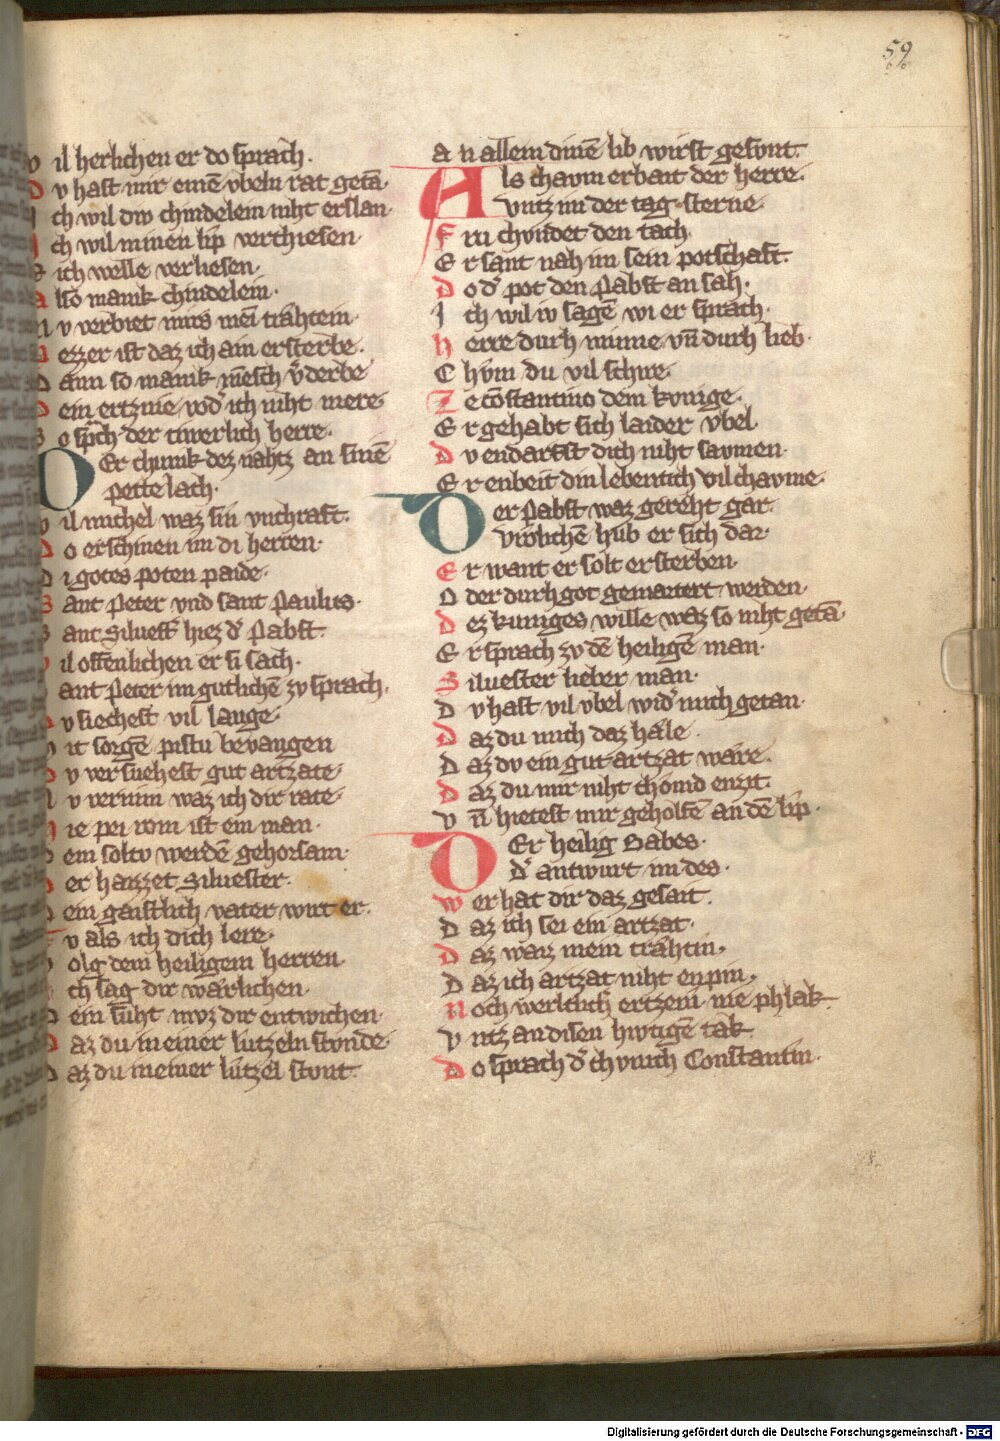 59
v il herlichen er do sprach.
D v hast mir einē vbeln rat getā.
I ch wil diw chindelein niht erslan.
I ch wil minen lip verchiesen
E ich welle verliesen.
a lso manik chindelein.
N v verbiet mirs mei trähtein.
B ezzer ist daz ich ain ersterbe.
D ann so manik mēsch v̄derbe
D ein ertznie wod ich niht mere
S o sp̄ch der tiwerlich herre.
DEr chunik dez nahtz an sinē
pette lach.
v il michel waz sin vnchraft.
D o erschinen im di herren.
D i gotes poten paide.
S ant Peter vnd sant Paulus.
S ant Siluest̄ hiez d̄ Pabst.
v il offenlichen er si sach.
S ant Peter im gutlichē zv sprach.
D v siechest vil lange.
M it sorgē pistu bevangen
D v versuchest gut artzate
N v vernim waz ich dir rate.
H ie pei rom ist ein man.
D em soltv werdē gehorsam.
D er haizzet Siluester.
D ein gaistlich vater wirt er.
T v als ich dich lere.
v olg dem heiligem herren.
I ch sag dir wärlichen.
D ein suht mvz dir entwichen.
D az du in einer lutzeln stunde
D az du in einer lützel stvnt.
a n allem dinē lib wirst gesvnt.
Als chavm erbait der herre.
vntz im der tag sterne.
F ru chvndet den tach.
E r sant nah im sein potschaft.
D o d̄ pot den Pabst an sah.
I ch wil iv sagē wi er sprach.
h erre durh minne vn̄ durh lieb.
C hvm du vil schire.
Z e cōstantino dem kvnige.
E r gehabt sich laider vbel
D v endarfst dich niht savmen.
E r enbeit din lebentich vil chavme.
Der Pabst waz gereht gar.
Vrölichē hub er sich dar.
E r want er solt ersterben.
O der durh got gemartert werden.
D ez kuniges wille waz so niht getā.
E r sprach zv dē heiligē man.
S iluester lieber man.
D v hast vil vbel wid̄ mich getan.
D az du mich daz hæle.
D az dv ein gut artzat ware.
D az du mir niht chomd enzit.
V n̄ hietest mir geholfē an dē lip.
DEr heilig Babes.
D̄ antwurt im des.
W er hat dir daz gesait.
D az ich sei ein artzat.
D az waiz mein trähtin.
D az ich artzat niht enpin.
N och werltlich̄ ertzeni nie phlak.
V ntz an disen hivtigē tak.
D o sprach d̄ chvnich Constantin.
Digitalisierung gefördert durch die Deutsche Forschungsgemeinschaft - DFG